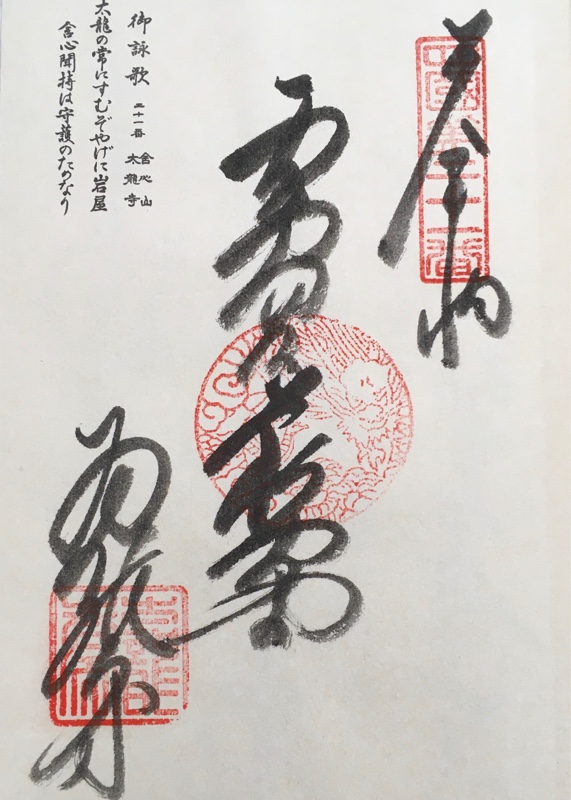 四國第二十一番
奉納
御詠歌 二十一番 舎心山 太龍寺
太龍の常にすむぞやげに岩屋
舎心聞持は守護のためなり
太龍寺